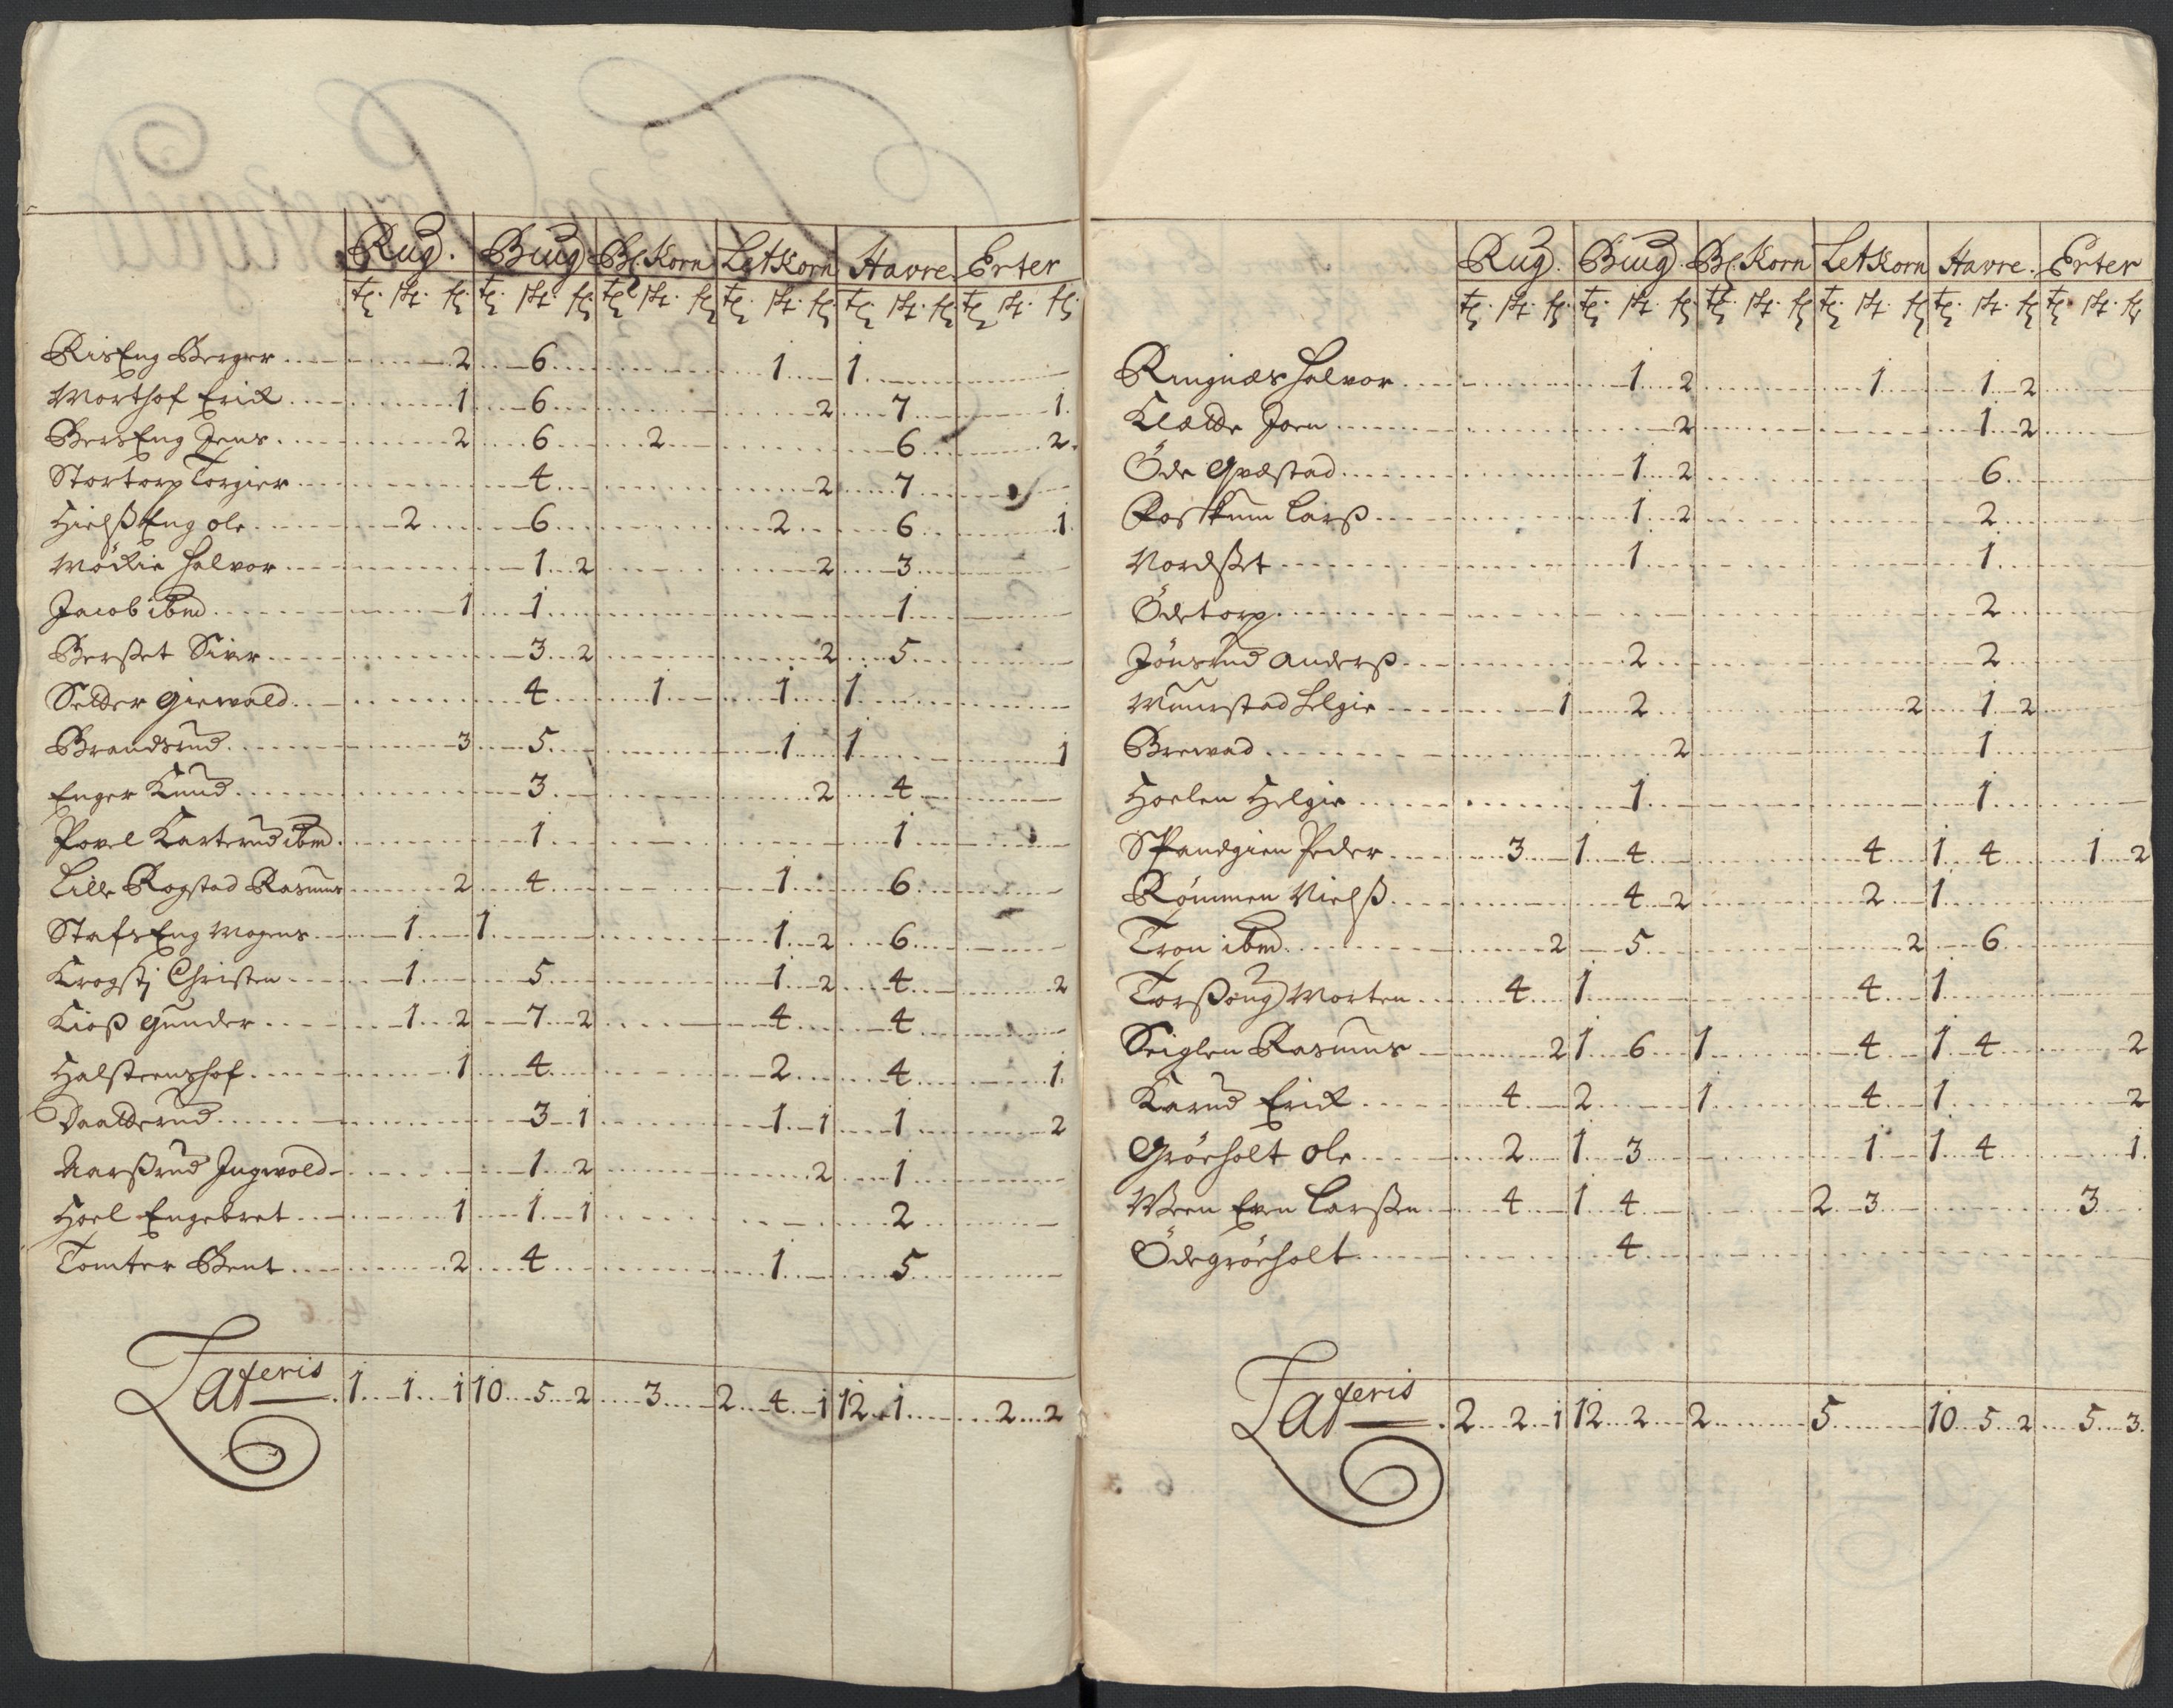 Rug. Biug Bl. Korn LetKorn Havre Erter
tr. sk. fr. tr. sk. fr. tr. sk. fr. tr. sk. fr. tr. sk. fr. tr. sk. fr.
RisEng Berger 2 6 1 1
Morthof Erick 1 6 2 7 1
BersEng Jens 2 6 2 6 2
Stortorp Torgier 4 2 7
HielßEng ole 2 6 2 6 1
Möckie halvor 1 2 2 3
Jacob ibmd 1 1 1
Berßet Siver 3 2 2 5
Selder Giervald 4 1 1 1
Brandsrud 3 5 1 1 1
Enger Knud 3 2 4
Povel Karterud ibmd 1 1
Lille Rogstad Rasmus 2 4 1 6
StafsEng Mogens 1 1 1 2 6
Krogstj Christen 1 5 1 2 4 2
Kioß Gunder 1 2 7 2 4 4
Halsteenshof 1 4 2 4 1
Daalderud 3 1 1 1 1 2
Aarßrud Ingwold 1 2 2 1
Hoel Engebret 1 1 1 2
Tomter Bent 2 4 1 5
Lateris 1 1 1 10 5 2 3 2 4 1 12 1 2 2
Rug. Biug. Bl. Korn LetKorn Havre. Erter
tr. sk. fr. tr. sk. fr. tr. sk. fr. tr. sk. fr. tr. sk. fr. tr. sk. fr.
Ringnæs halvor 1 2 1 1 2
Joen 2 1 2
Öde Qvæstad 1 2 6
Larß 1 2 2
Nordßet 1 1
Ödetorp 2
Jönsrud Anderß 2 2
Muurstad helgie 1 2 2 1 2
Brevad 2 1
Hoelen Helgie 1 1
Spandgien Peder 3 1 4 4 1 4 1 2
Römmen Nielß 4 2 2 1
Tron ibmd 2 5 2 6
Morten 4 1 4 1
Seiglen Rasmus 2 1 6 1 4 1 4 2
Karud Erick 4 2 1 4 1 2
Gröeholt ole 2 1 3 1 1 4 1
Ween Even Larßen 4 1 4 2 3 3
Ödegröeholt 4
Lateris 2 2 1 12 2 2 5 10 5 2 5 3